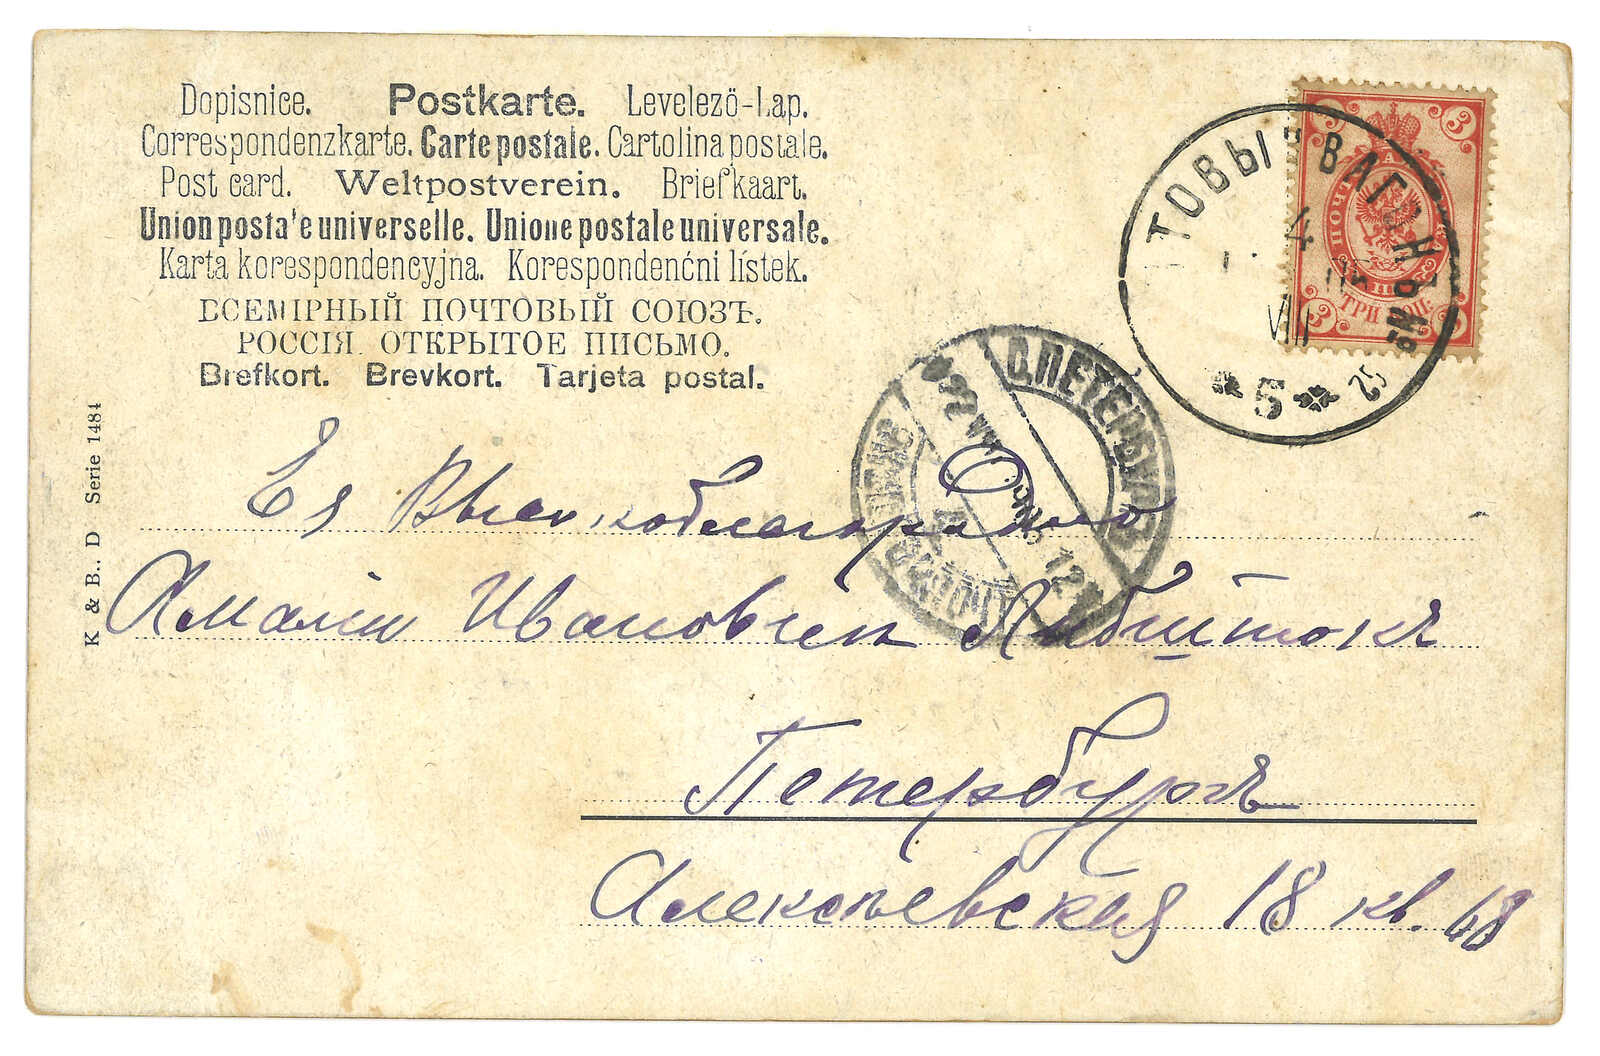 Dopisnice. Postkarte. Levelezö-Lap.
Correspondenzkarte. Carte postale. Cartolina postale.
Post card. Weltpostverein. Briefkaart.
Union postale universelle. Unione postale universale.
Karta korespondencyjna. Korespondenćni lístek.
ВСЕМІРНЫЙ ПОЧТОВЫЙ СОЮЗЪ.
РОССІЯ. ОТКРЫТОЕ ПИСЬМО.
Brefkort. Brevkort. Tarjeta postal.
K & B., D Serie 1484
ТОВЫЙ ВАГОНЪ
4
VIII
5
25
3 3
ПОЧТ
ТРИ КОП.
3 3
С.ПЕТЕРБУРГЪ
22
12
Ея Высокоблагородію
Амаліи Ивановнѣ Либштокъ
Петербургъ
Алексѣевская 18 кв. 68